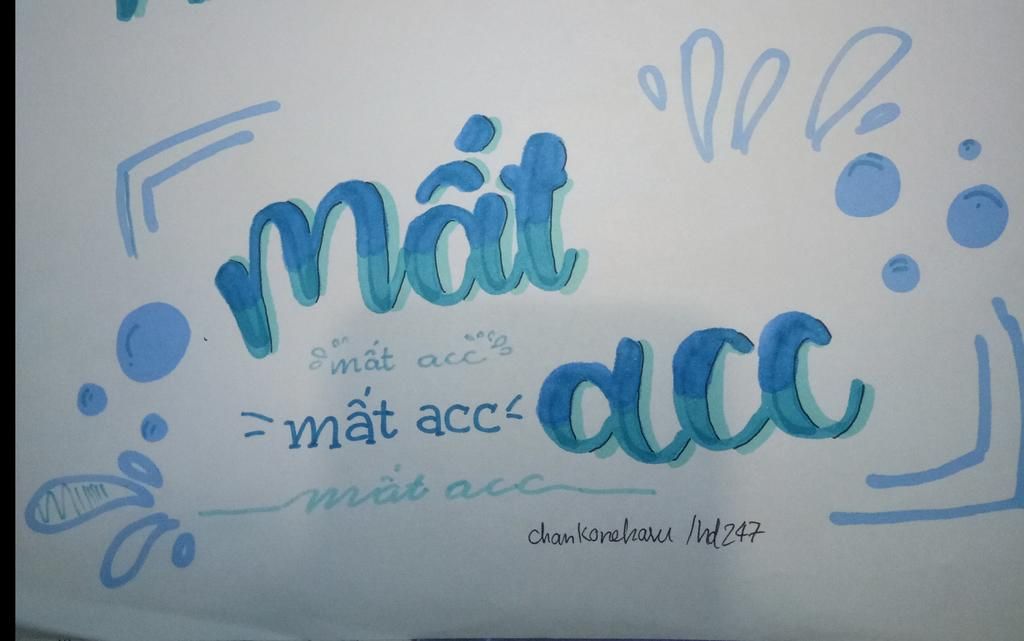 mất
acc
mất acc
mất acc
mất acc
chankoneharu /hd247